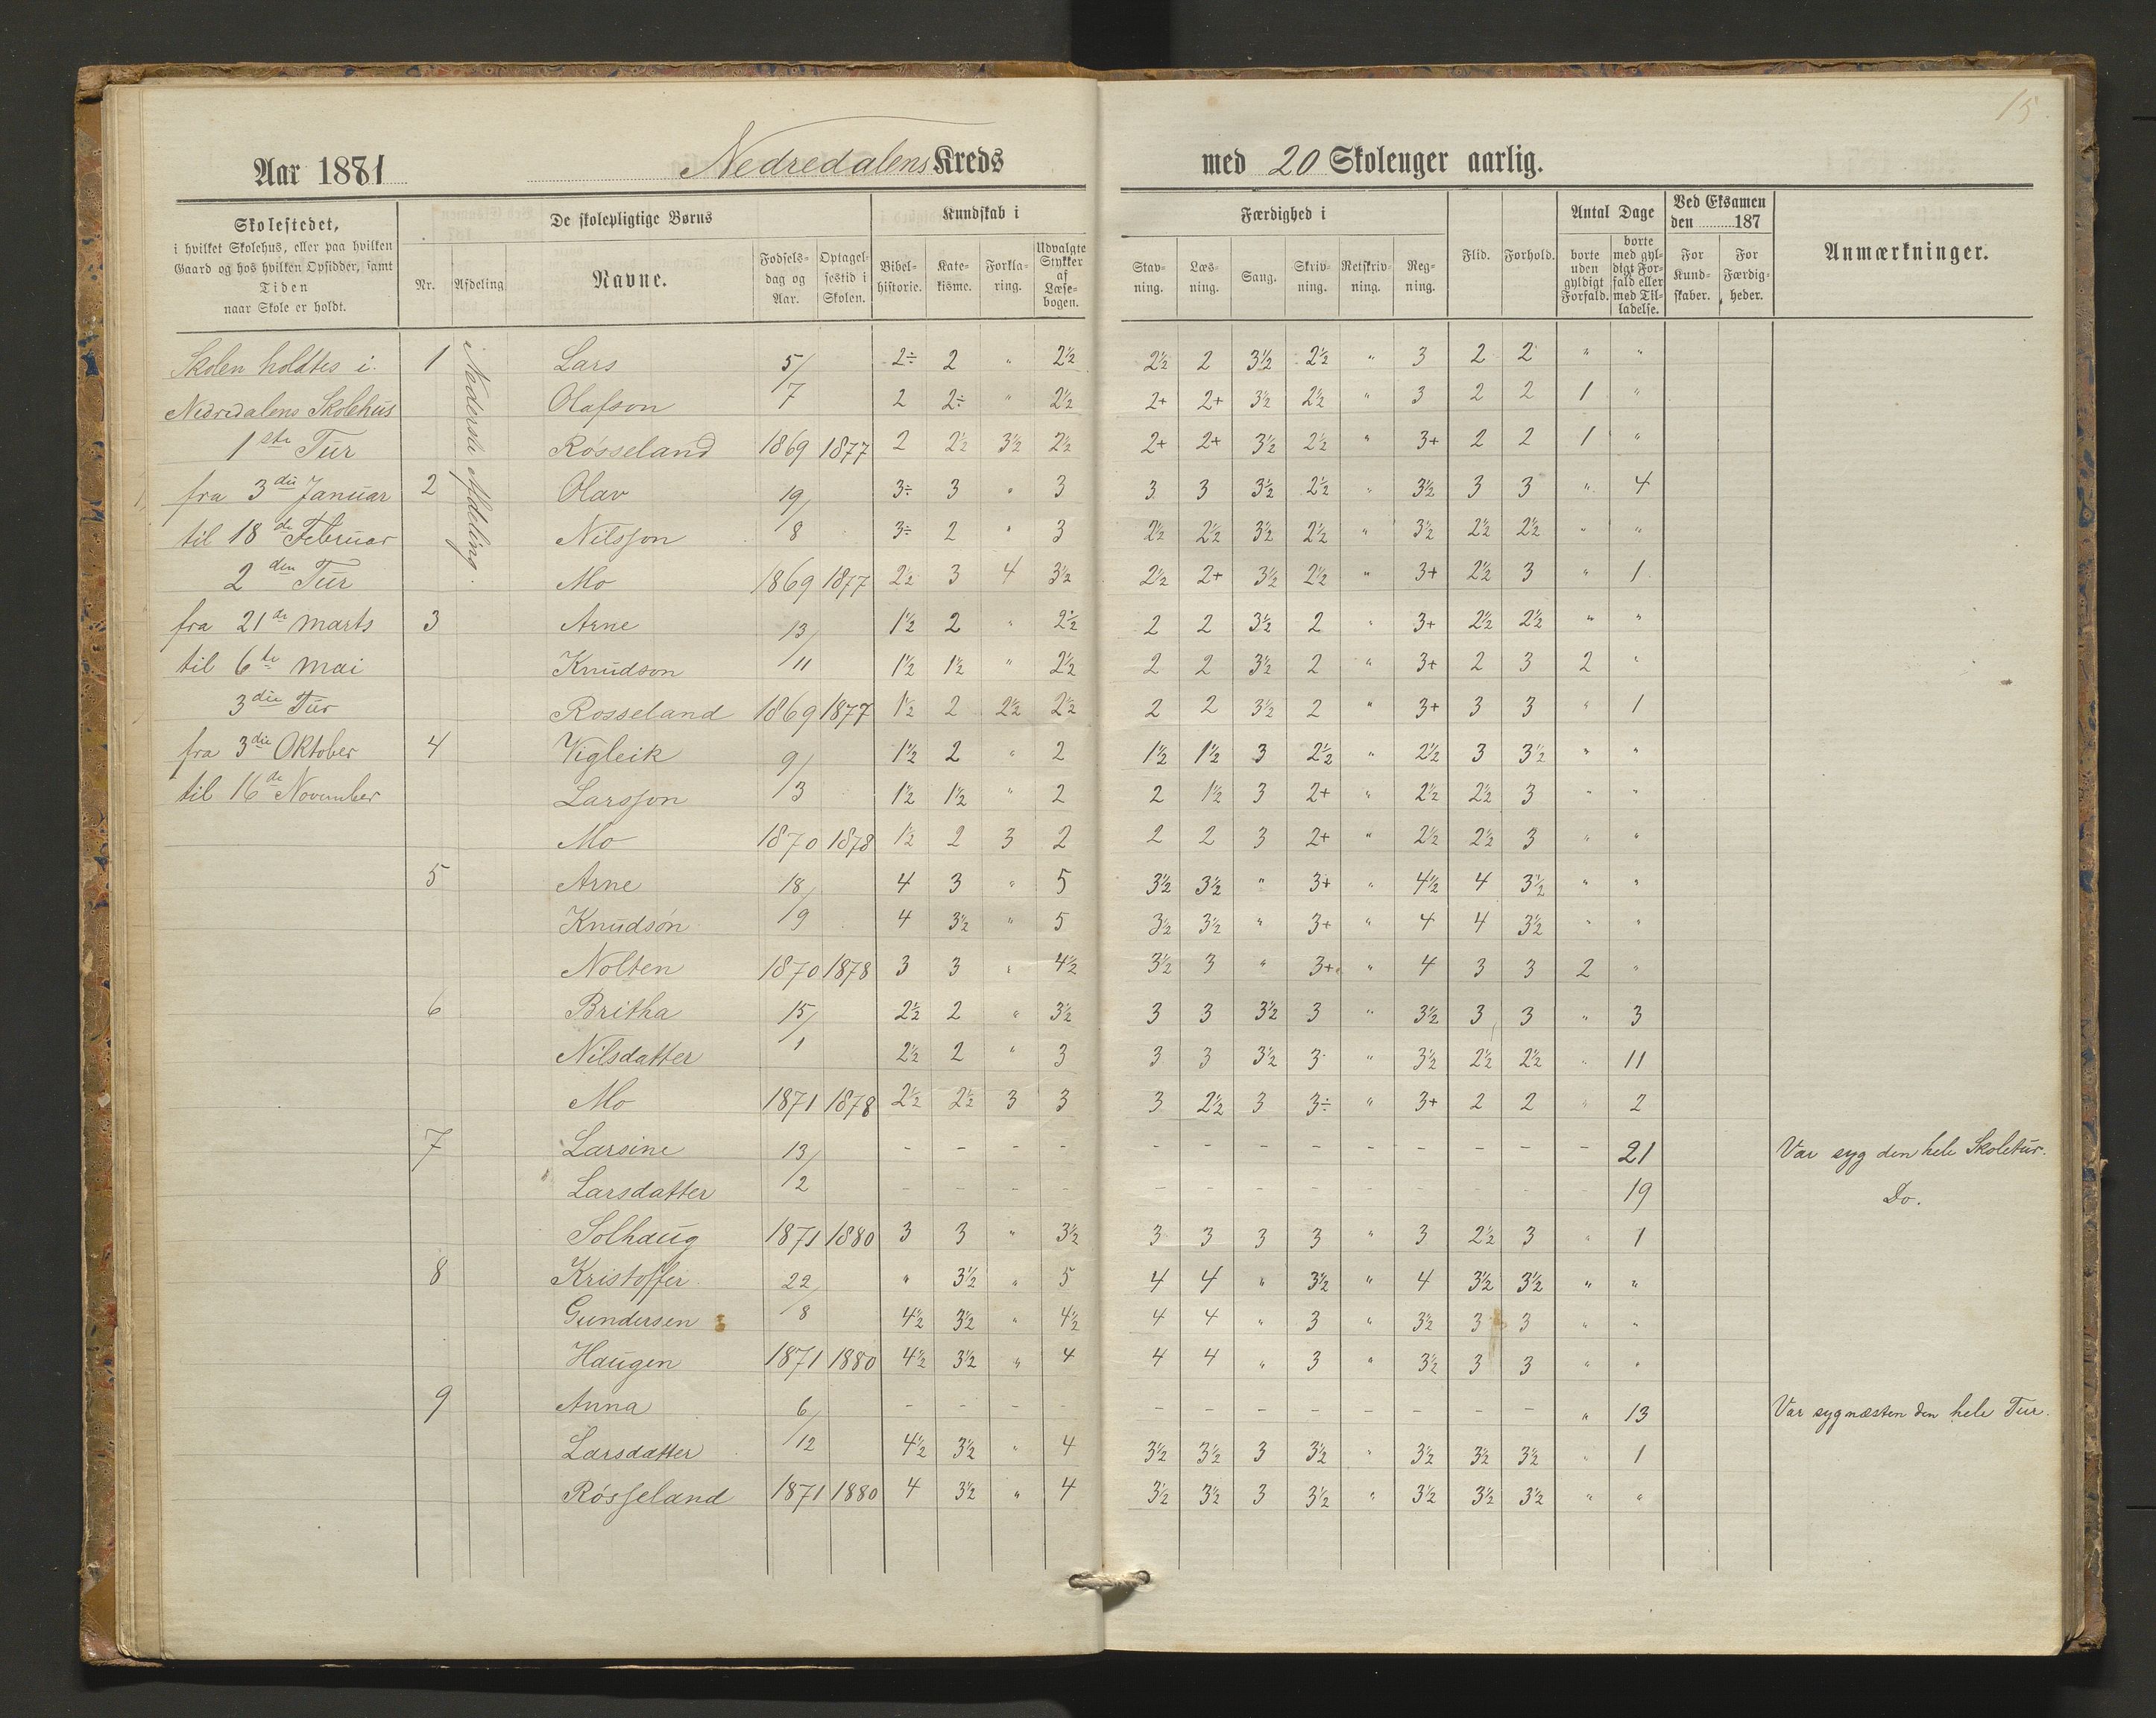 15
Aar 1881 Nedredalens Kreds med 20 Skoleuger aarlig.
Skolestedet,
i hvilket Skolehus, eller paa hvilken
Gaard og hos hvilken Opsidder, samt
Tiden
naar Skole er holdt.
De skolepligtige Børns
Nr.
Afdeling
Navne.
Fødsels-
dag og
Aar.
Optagel-
sestid i
Skolen.
Kundskab i
Bibel-
historie.
Kate-
kisme.
Forkla-
ring.
Udvalgte
Stykker
af
Læse-
bogen.
Færdighed i
Stav-
ning.
Læs-
ning.
Sang.
Skriv-
ning.
Retskriv-
ning.
Reg-
ning.
Flid.
Forhold.
Antal Dage
borte
uden
gyldigt
Forfald.
borte
med gyl-
digt For-
fald eller
med Til-
ladelse.
Ved Eksamen
den 187
For
Kund-
skaber.
For
Færdig-
heder.
Anmærkninger.
Skolen holdtes i
Nedredalens Skolehus
1ste Tur
fra 3die Januar
til 18de Februar
2den Tur
fra 21de Marts
til 6te Mai
3die Tur
fra 3die Oktober
til 16de November
Nederste Afdeling.
1 Lars 5/ 2÷ 2 " 2½ 2½ 2 3½ 2½ " 3 2 2 " "
Olafson 7 2 2÷ " 2½ 2+ 2+ 3½ 2½ " 3 2 2 1 "
Rosseland 1869 1877 2 2½ 3½ 2½ 2+ 2+ 3½ 2½ " 3+ 2 2 1 "
2 Olav 19/ 3÷ 3 " 3 3 3 3½ 2½ " 3½ 3 3 " 4
Nilsson 8 3÷ 2 " 3 2½ 2½ 3½ 2½ " 3½ 2½ 2½ " "
Mo 1869 1877 2½ 3 4 3½ 2½ 2+ 3½ 2½ " 3+ 2½ 3 " 1
3 Arne 13/ 1½ 2 " 2½ 2 2 3½ 2 " 3+ 2½ 2½ " "
Knudson 11 1½ 1½ " 2½ 2 2 3½ 2 " 3+ 2 3 2 "
Rosseland 1869 1877 1½ 2 2½ 2½ 2 2 3½ 2 " 3+ 3 3 " 1
4 Vigleik 9/ 1½ 2 " 2 1½ 1½ 3 2½ " 2½ 3 3½ " "
Larsson 3 1½ 1½ " 2 2 1½ 3 2+ " 2½ 2½ 3 " "
Mo 1870 1878 1½ 2 3 2 2 2 3 2+ " 2½ 2½ 3 " "
5 Arne 18/ 4 3 " 5 3½ 3½ " 3+ " 4½ 4 3½ " "
Knudson 9 4 3½ " 5 3½ 3½ " 3+ " 4 4 3½ " "
Nolten 1870 1878 3 3 " 4½ 3½ 3 " 3+ " 4 3 3 2 "
6 Britha 15/ 2½ 2 " 3½ 3 3 3½ 3 " 3½ 3 3 " 3
Nilsdatter 1 2½ 2 " 3 3 3 3½ 3 " 3½ 2½ 2½ " 11
Mo 1871 1878 2½ 2½ 3 3 3 2½ 3 3÷ " 3+ 2 2 " 2
7 Larsine 13/ - - - - - - - - - - - - - 21 Var syg den hele Skoletur.
Larsdatter 2 - - - - - - - - - - - - - 19 Do.
Solhaug 1871 1880 3 3 " 3½ 3 3 3 3 " 3 2½ 3 " 1
8 Kristoffer 22/ " 3½ " 5 4 4 " 3½ " 4 3½ 3½ " "
Gundersen 8 4½ 3½ " 4½ 4 4 " 3 " 3½ 3 3 " "
Haugen 1871 1880 4½ 3½ " 4 4 4 " 3 " 3½ 3 3 " "
9 Anna 6/ - - - - - - - - - - - " 13 Var syg næsten den hele Tur.
Larsdatter 12 4½ 3½ " 4 3½ 3½ 3 3½ " 3½ 3½ 3½ " 1
Rosseland 1871 1880 4 3½ " 4 3½ 3½ 3 3½ " 3½ 3½ 3½ " "